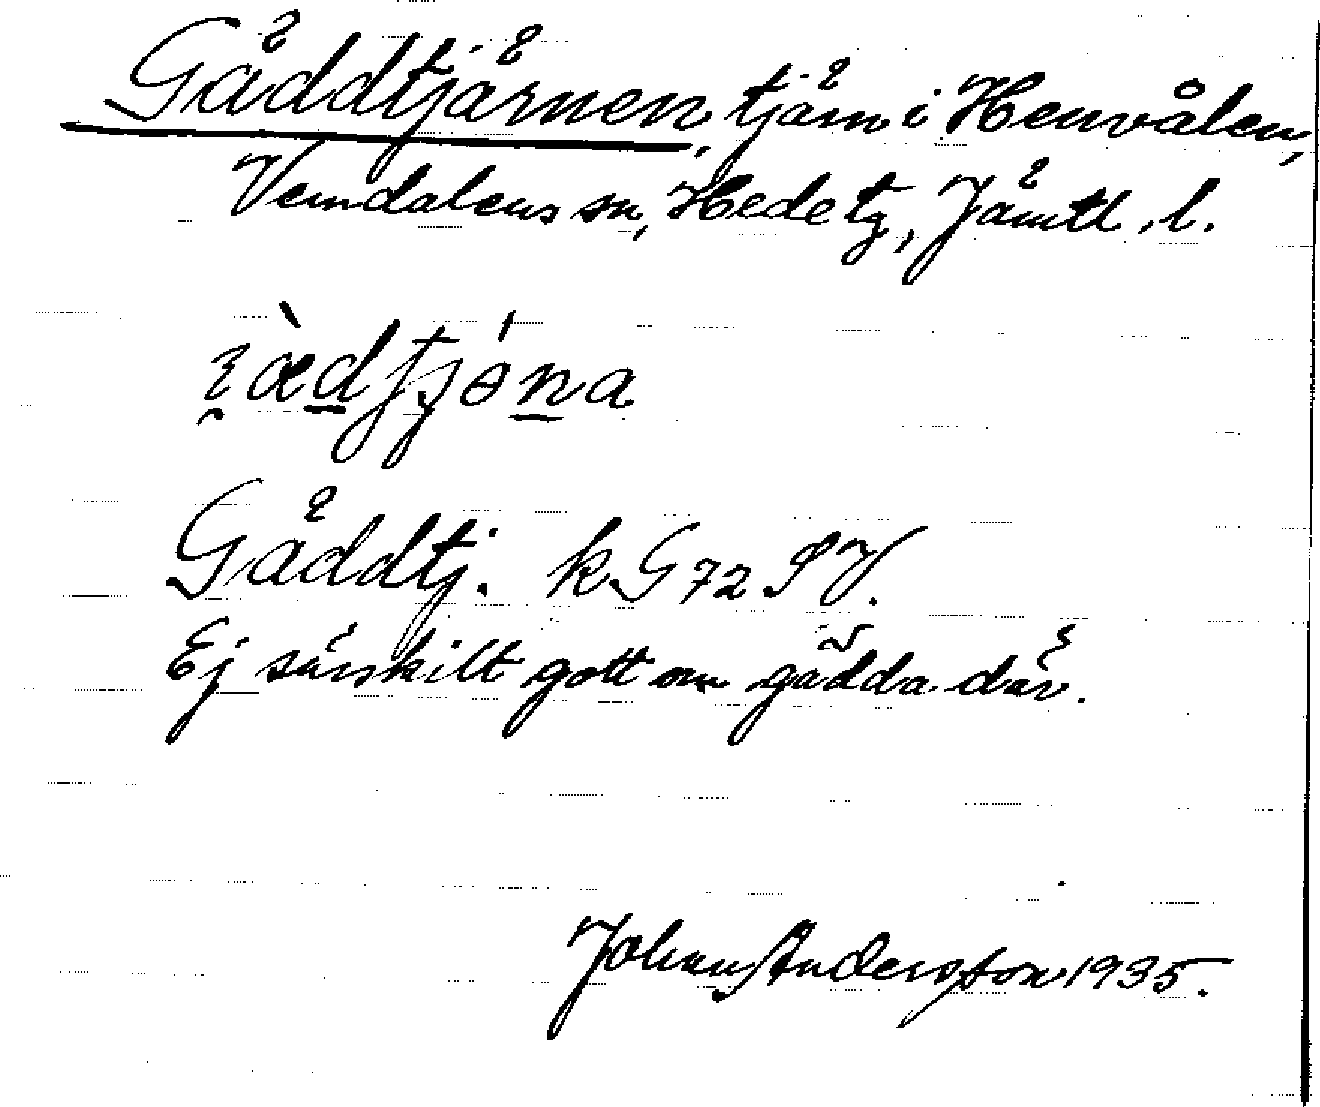 Gäddtjärnen, tjärn i Henvålen,
Vemdalens sn, Hede tg, Jämtl. l.
Gäddtj. k G72 SV.
Ej särskilt gott om gädda där.
Johan Andersson 1935.